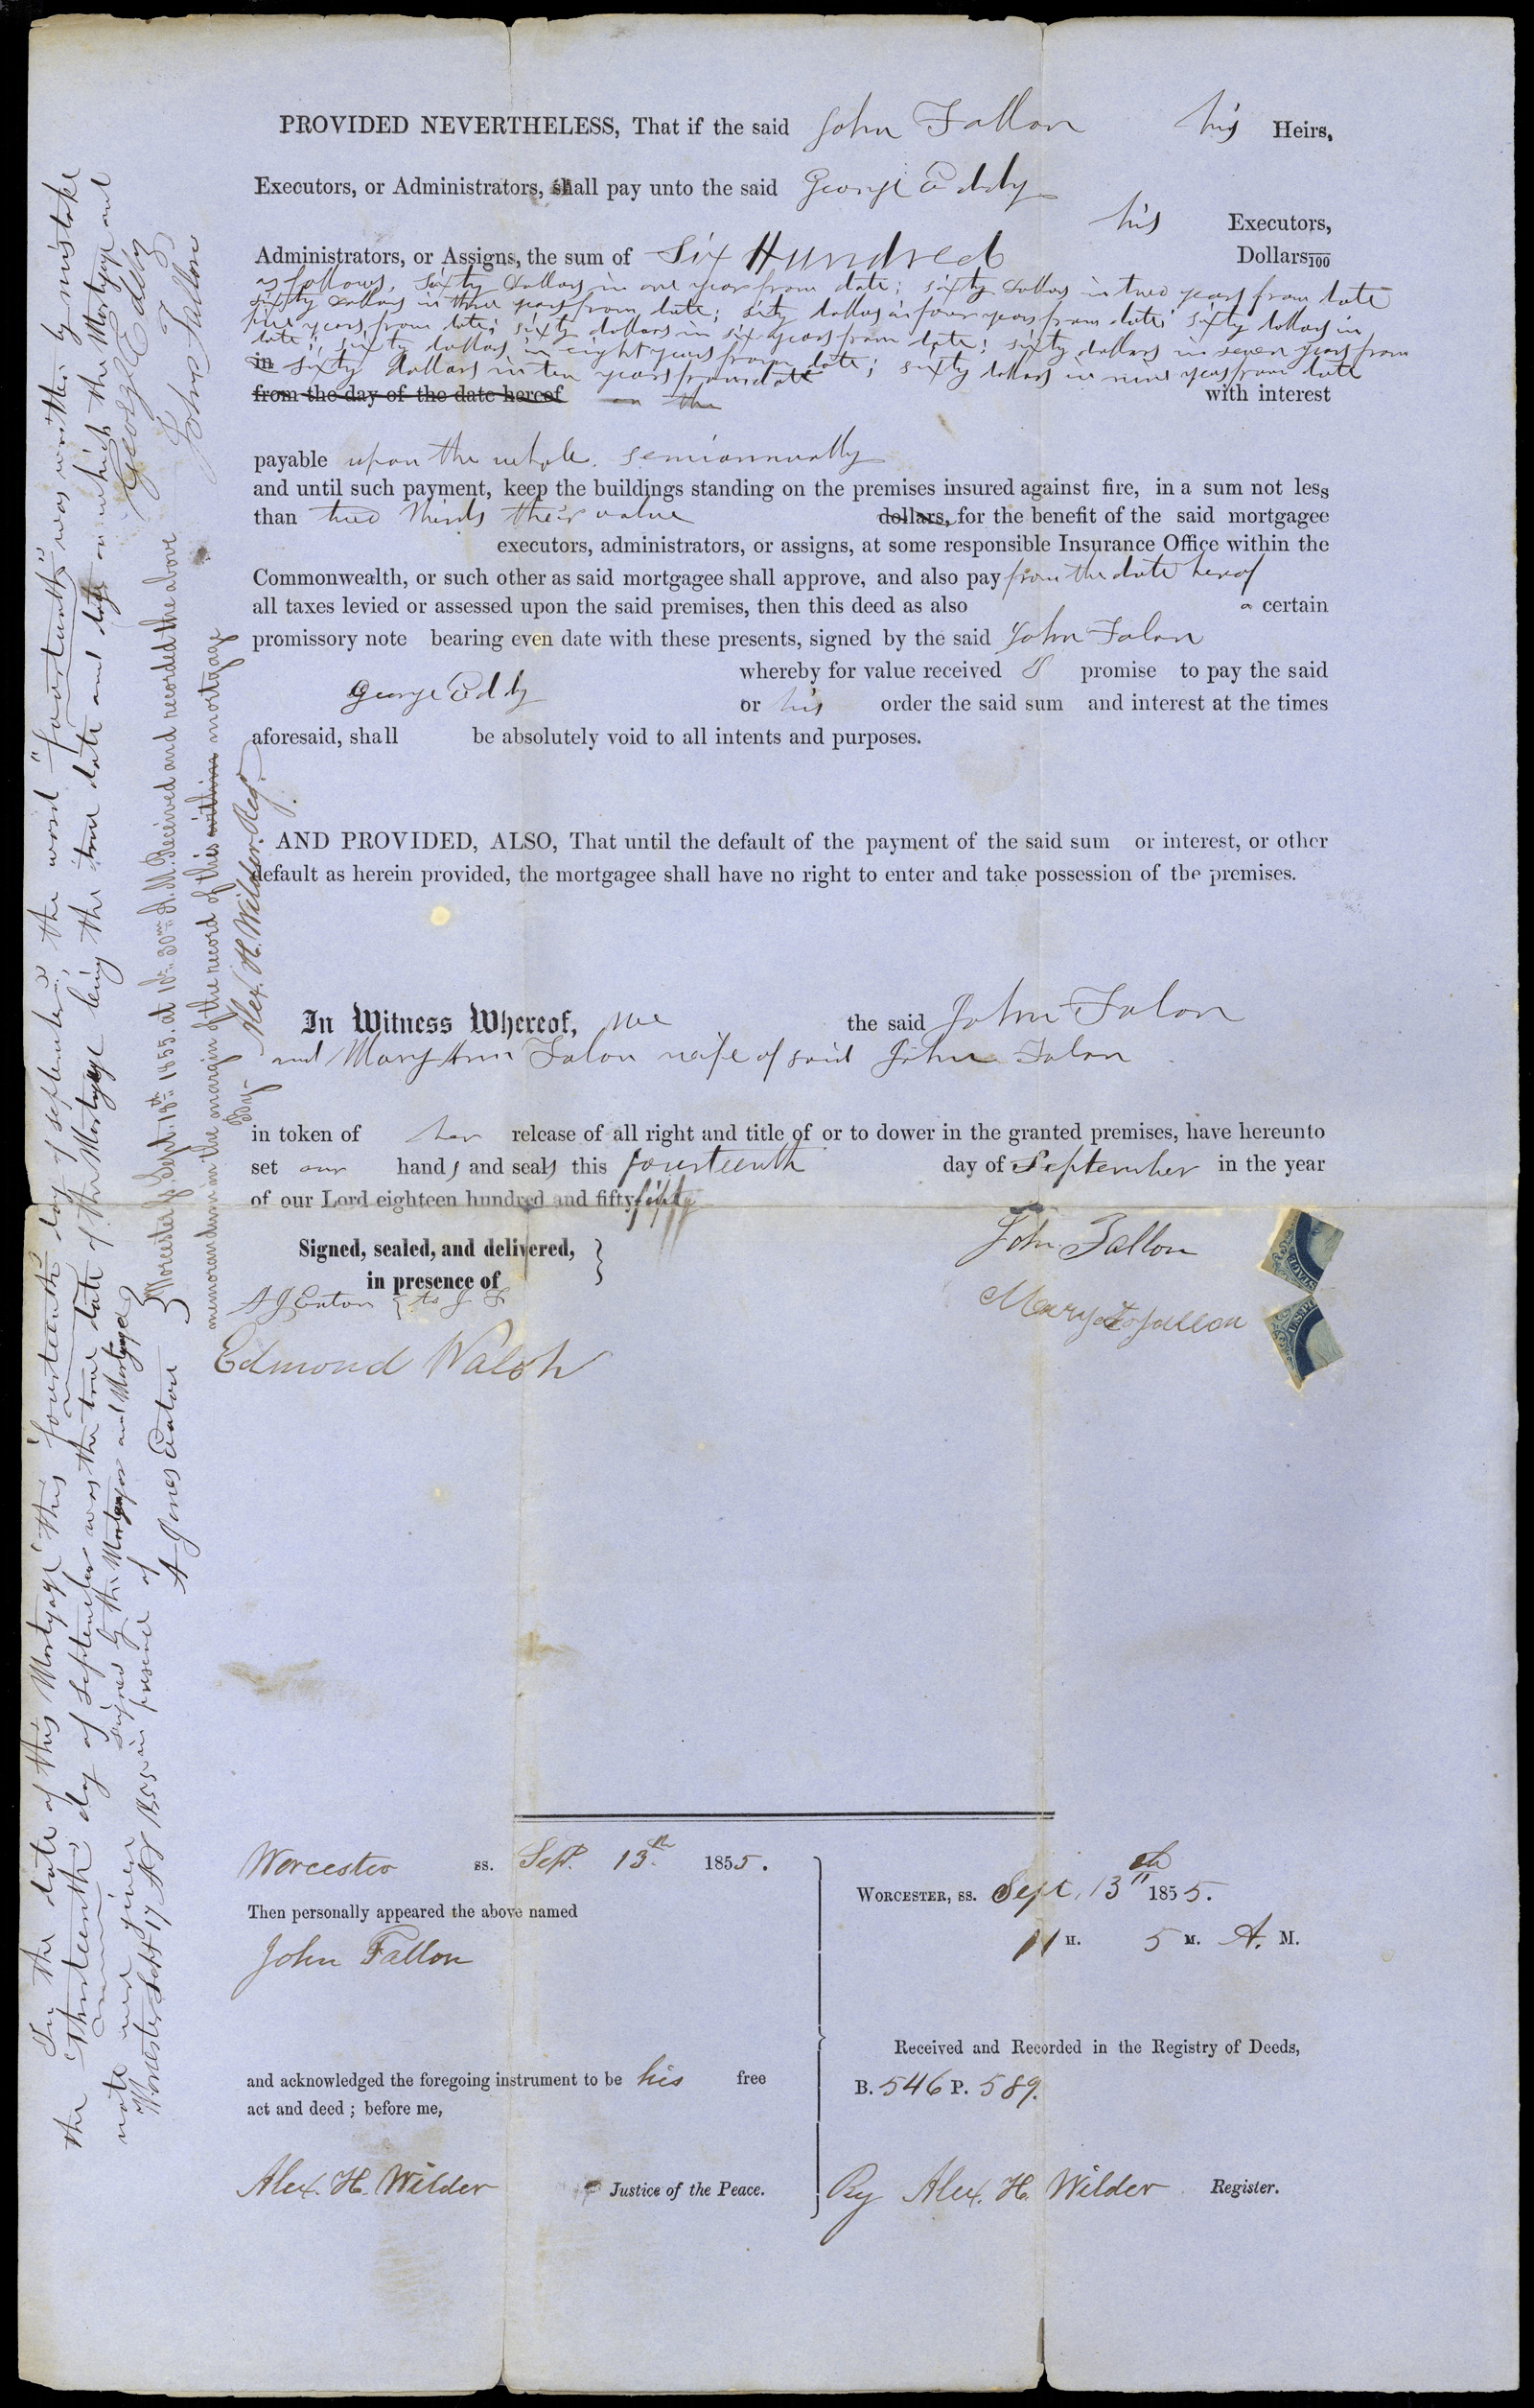 PROVIDED NEVERTHELESS, That if the said John Fallon his Heirs,
Executors, or Administrators, shall pay unto the said George Eddy
his Executors,
Administrators, or Assigns, the sum of Six Hundred Dollars 100
as follows, sixty dollars in one year from date; sixty dollars in two years from date
sixty dollars in three years from date; sixty dollars in four years from date; sixty dollars in
five years from date; sixty dollars in six years from date; sixty dollars in seven years from
date; sixty dollars in eight years from date; sixty dollars in nine years from date
in sixty dollars in ten years from date
from the day of the date hereof on the with interest
payable upon the whole semiannually
and until such payment, keep the buildings standing on the premises insured against fire, in a sum not less
than two thirds their value dollars, for the benefit of the said mortgagee
executors, administrators, or assigns, at some responsible Insurance Office within the
Commonwealth, or such other as said mortgagee shall approve, and also pay from the date hereof
all taxes levied or assessed upon the said premises, then this deed as also a certain
promissory note bearing even date with these presents, signed by the said John Falon
whereby for value received I promise to pay the said
George Eddy or his order the said sum and interest at the times
aforesaid, shall be absolutely void to all intents and purposes.
AND PROVIDED, ALSO, That until the default of the payment of the said sum or interest, or other
default as herein provided, the mortgagee shall have no right to enter and take possession of the premises.
In Witness Whereof, we the said John Falon
and Mary Ann Falon wife of said John Falon
in token of her release of all right and title of or to dower in the granted premises, have hereunto
set our hands and seals this fourteenth day of September in the year
of our Lord eighteen hundred and fifty fifty
Signed, sealed, and delivered,
in presence of
A J Eaton } to J. F.
Edmond Walsh
John Fallon
Mary Fallon
Worcester ss. Sept. 13th 1855.
Then personally appeared the above named
John Fallon
and acknowledged the foregoing instrument to be his free
act and deed; before me,
Alex. H. Wilder Justice of the Peace.
WORCESTER, SS. Sept, 13th 1855.
11 H. 5 M. A. M.
Received and Recorded in the Registry of Deeds,
B. 546 P. 589.
By Alex. H. Wilder Register.
In the date of this Mortgage "this fourteenth day of september" the word "fourteenth" was written by mistake
the "thirteenth" day of September was the true date of the Mortgage being the true date and day on which the Mortgage and
note were given signed by the Mortgagor and Mortgagee
Worcester Sept 17 AD 1855 in presence of
A Jones Eaton
George Eddy
John Fallon
Worcester ss. Sept. 18th 1855. at 10h 30m A.M. Received and recorded the above
memorandum in the margin of the record of this within mortgage
By Alex. H. Wilder. Reg.